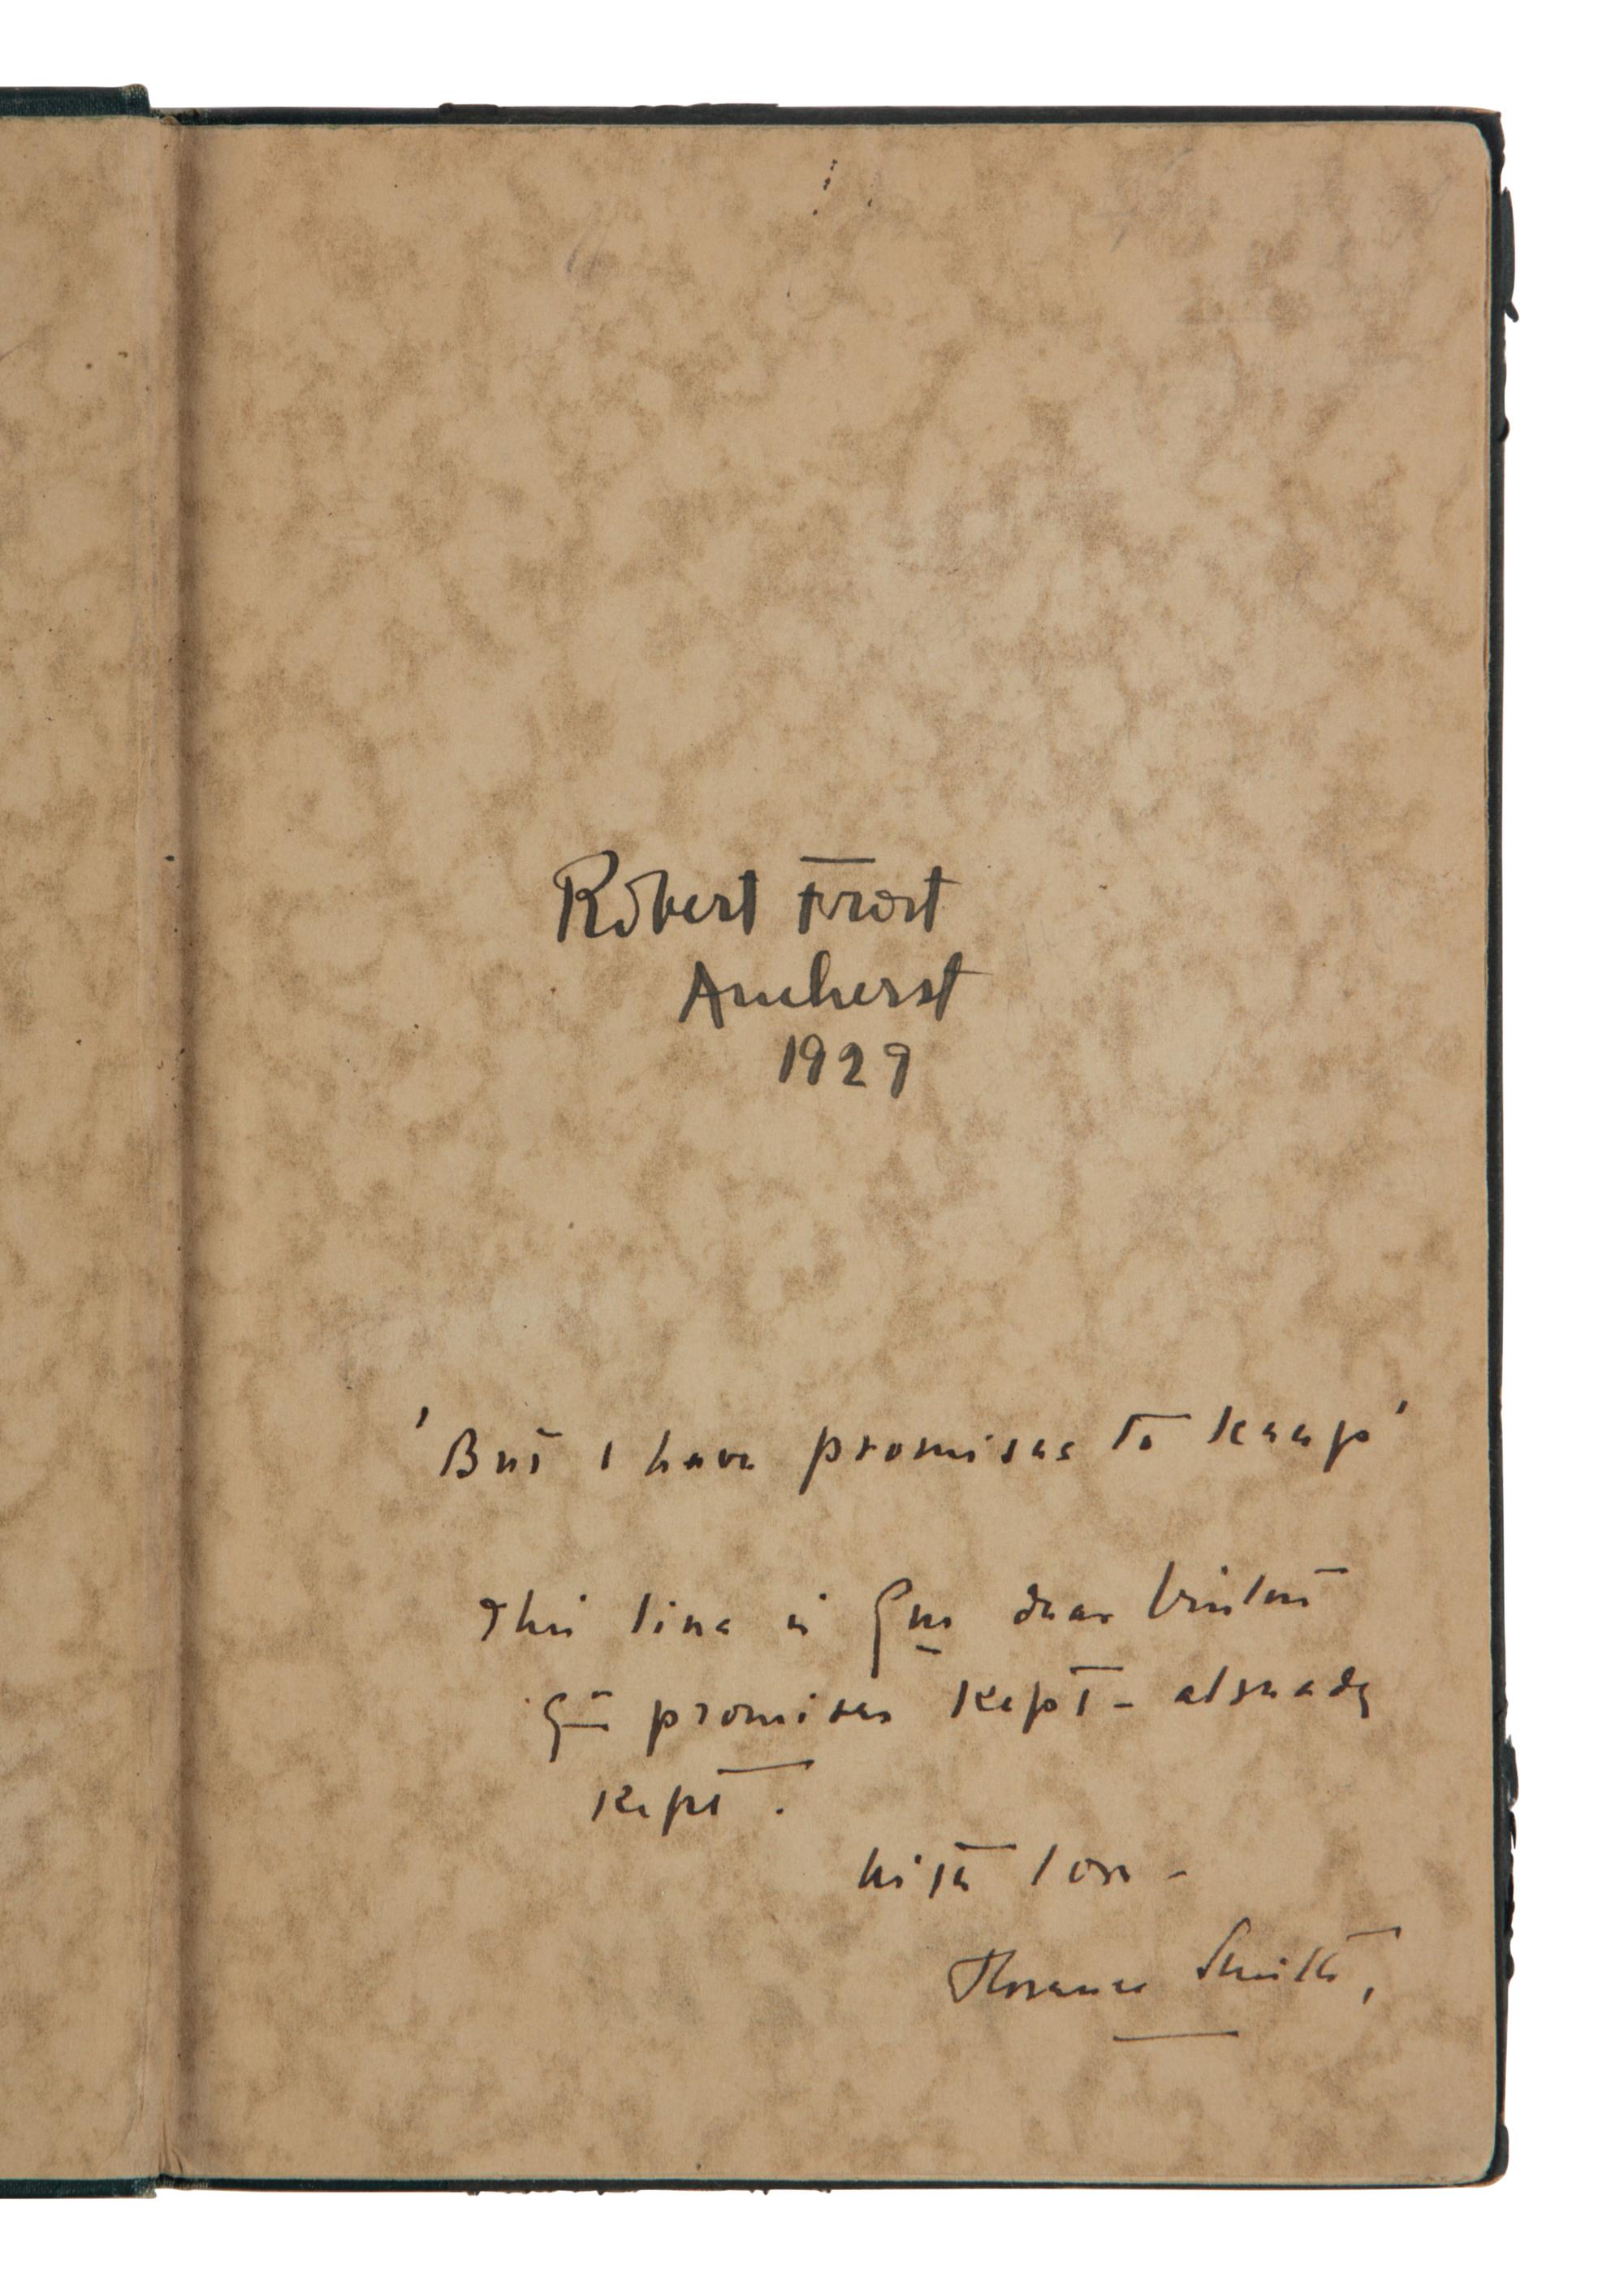 Robert Frost
Amherst
1929
'But I have promises to keep'
This line is for dear
for promises kept - already
kept.
with love -
Florence Smith,